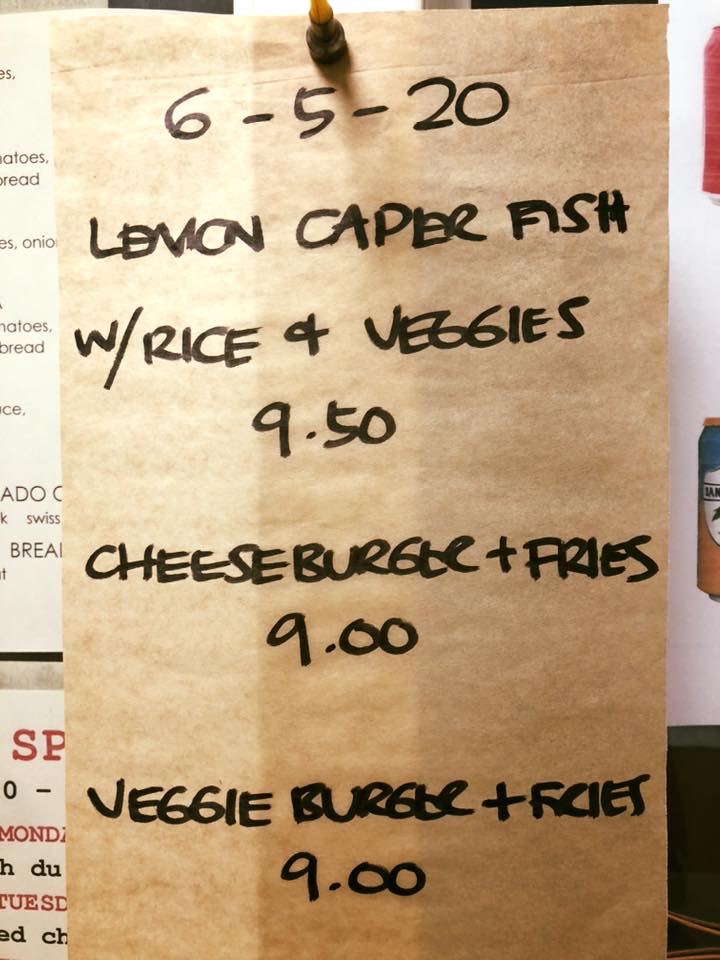 6-5-20
LEMON CAPER FISH
W/RICE & VEGGIES
9.50
CHEESEBURGER + FRIES
9.00
VEGGIE BURGER + FRIES
9.00
es,
matoes,
bread
es, onio
matoes,
bread
uce,
ADO C
k swiss
BREA
SP
0 –
MONDA
h du
TUESD
ed ch